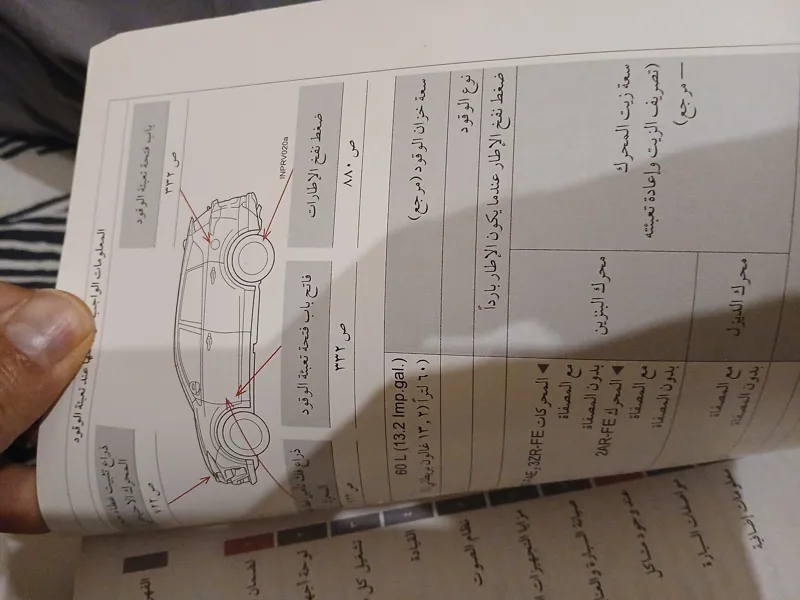 المعلومات الواجب
عند تعبئة الوقود
باب فتحة تعبئة الوقود
ص ٣٣٢
ذراع تثبيت غطاء
المحرك
ص ١٢٢
INPRV020a
ضغط نفخ الإطارات
ص ٨٨٠
فاتح باب فتحة تعبئة الوقود
ص ٣٣٢
ذراع
سعة خزان الوقود (مرجع)
60 L (13.2 Imp.gal.)
(٦٠ لتراً، ١٣,٢ غالون بريطاني)
نوع الوقود
ضغط نفخ الإطار عندما يكون الإطار بارداً
سعة زيت المحرك
(تصريف الزيت وإعادة تعبئته
— مرجع)
محرك البنزين
◀ المحركات 3ZR-FE
مع المصفاة
بدون المصفاة
◀ المحرك 2AR-FE
مع المصفاة
بدون المصفاة
محرك الديزل
مع المصفاة
بدون المصفاة
لضمان
لوحة
تشغيل كل
القيادة
نظام الصوت
مزايا التجهيزات
صيانة السيارة والعناية
عند وجود مشاكل
مواصفات السيارة
معلومات إضافية